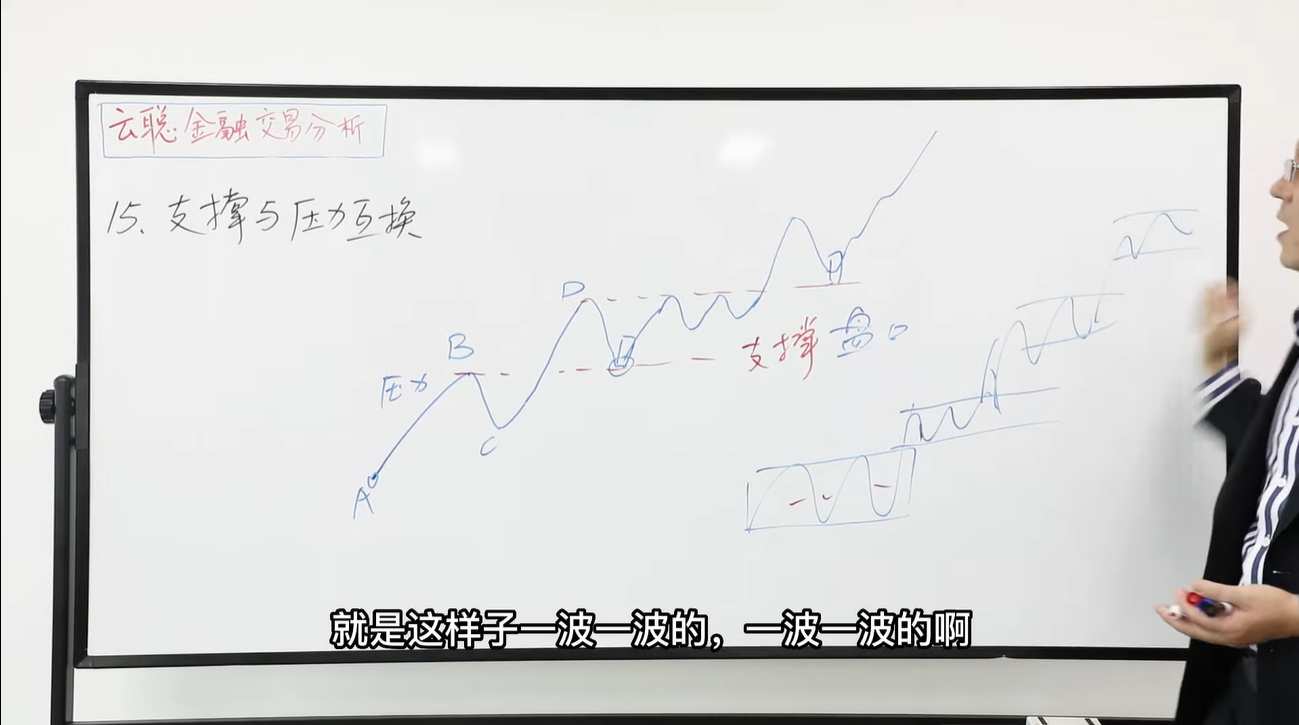 云聪金融交易分析
15、支撑与压力互换
D
B
压力
支撑 盘口
C
A
就是这样子一波一波的，一波一波的啊